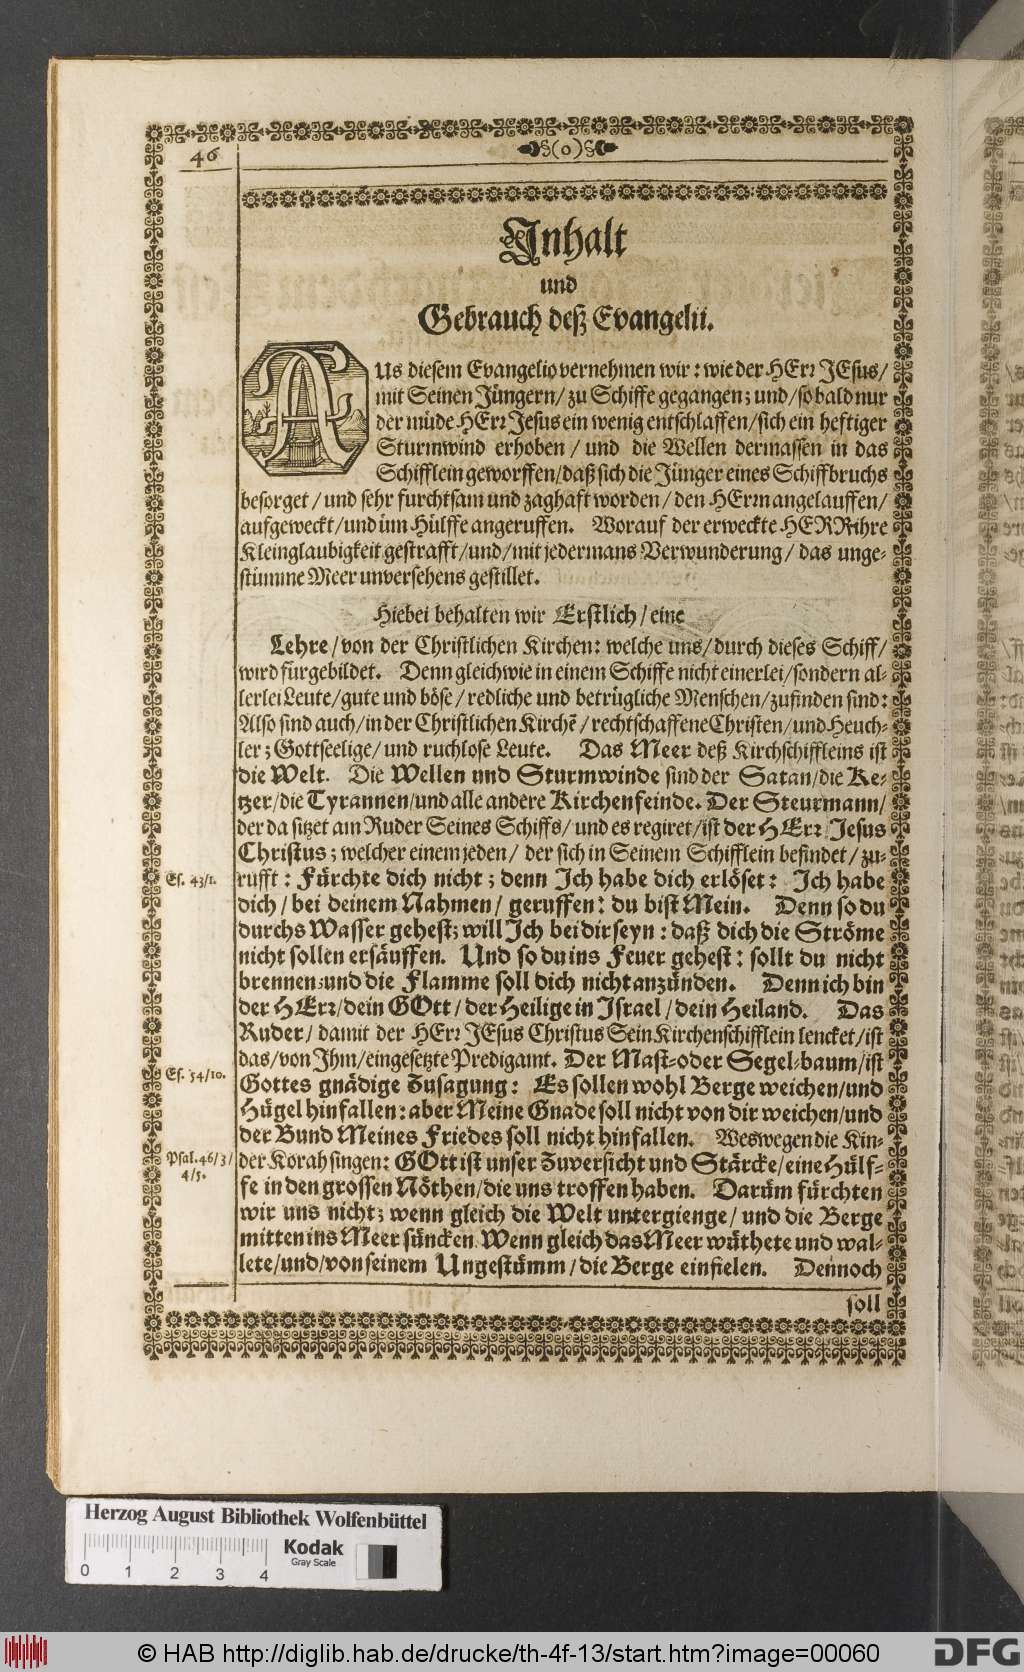 46
§(o)§
Inhalt
und
Gebrauch deß Evangelii.
AUs diesem Evangelio vernehmen wir: wie der HErr JEsus/
mit Seinen Jüngern/ zu Schiffe gegangen; und/ so bald nur
der müde HErr Jesus ein wenig entschlaffen/ sich ein heftiger
Sturmwind erhoben/ und die Wellen dermassen in das
Schifflein geworffen/ daß sich die Jünger eines Schiffbruchs
besorget/ und sehr furchtsam und zaghaft worden/ den HErrn angelauffen/
aufgeweckt/ und üm Hülffe angeruffen. Worauf der erweckte HERR ihre
Kleinglaubigkeit gestrafft/ und/ mit jedermans Verwunderung/ das unge-
stümme Meer unversehens gestillet.
Hiebei behalten wir Erstlich/ eine
Lehre/ von der Christlichen Kirchen: welche uns/ durch dieses Schiff/
wird fürgebildet. Denn gleichwie in einem Schiffe nicht einerlei/ sondern al-
lerlei Leute/ gute und böse/ redliche und betrügliche Menschen/ zufinden sind:
Also sind auch/ in der Christlichen Kirchẽ/ rechtschaffene Christen/ und Heuch-
ler; Gottseelige/ und ruchlose Leute. Das Meer deß Kirchschiffleins ist
die Welt. Die Wellen und Sturmwinde sind der Satan/ die Ke-
tzer/ die Tyrannen/ und alle andere Kirchenfeinde. Der Steurmann/
der da sitzet am Ruder Seines Schiffs/ und es regiret/ ist der HErr Jesus
Christus; welcher einem jeden/ der sich in Seinem Schifflein befindet/ zu-
Es. 43/1. rufft: Fürchte dich nicht; denn Ich habe dich erlöset: Ich habe
dich/ bei deinem Nahmen/ geruffen: du bist Mein. Denn so du
durchs Wasser gehest; will Ich bei dir seyn: daß dich die Ströme
nicht sollen ersäuffen. Und so du ins Feuer gehest: sollt du nicht
brennen; und die Flamme soll dich nicht anzünden. Denn ich bin
der HErr/ dein GOtt/ der Heilige in Israel/ dein Heiland. Das
Ruder/ damit der HErr JEsus Christus Sein Kirchenschifflein lencket/ ist
das/ von Ihm/ eingesetzte Predigamt. Der Mast- oder Segel-baum/ ist
Es. 54/10. Gottes gnädige Zusagung: Es sollen wohl Berge weichen/ und
Hügel hinfallen: aber Meine Gnade soll nicht von dir weichen/ und
der Bund Meines Friedes soll nicht hinfallen. Weswegen die Kin-
Psal. 46/3/ der Korah singen: GOtt ist unser Zuversicht und Stärcke/ eine Hülf-
4/5. fe in den grossen Nöthen/ die uns troffen haben. Darüm fürchten
wir uns nicht; wenn gleich die Welt untergienge/ und die Berge
mitten ins Meer süncken. Wenn gleich das Meer wüthete und wal-
lete/ und/ von seinem Ungestümm/ die Berge einfielen. Dennoch
soll
Herzog August Bibliothek Wolfenbüttel
0 1 2 3 4
Kodak
Gray Scale
© HAB http://diglib.hab.de/drucke/th-4f-13/start.htm?image=00060
DFG